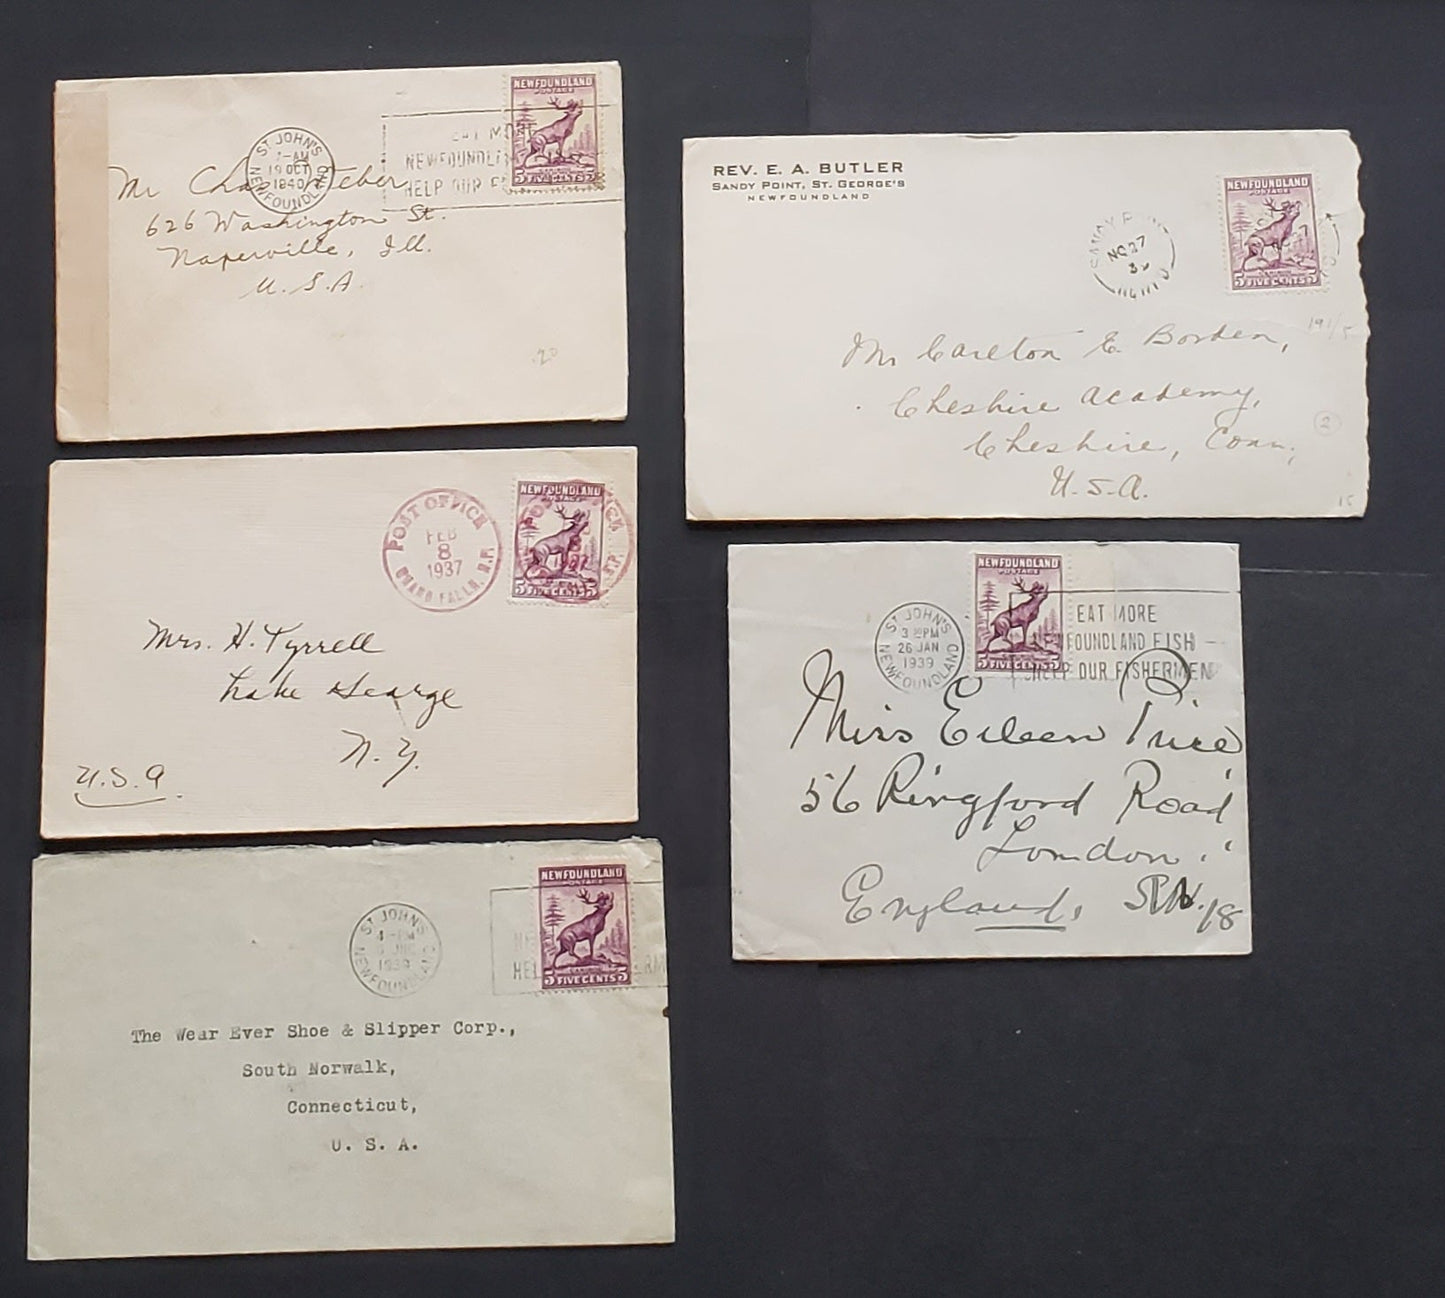 ST JOHN'S
19 OCT
1940
NEWFOUNDLAND
EAT MO
NEWFOUNDL
HELP OUR F
NEWFOUNDLAND
POSTAGE
CARIBOU
5 FIVE CENTS 5
Mr Chas
626 Washington St.
Naperville, Ill.
U. S. A.
20
REV. E. A. BUTLER
SANDY POINT, ST. GEORGE'S
NEWFOUNDLAND
SANDY P
NO 27
NEWFOUNDLAND
POSTAGE
CARIBOU
5 FIVE CENTS 5
191/5
Mr Carlton E. Borden,
Cheshire Academy,
Cheshire, Conn,
U.S.A.
2
15
POST OFFICE
FEB
8
1937
GRAND FALLS, N.F.
NEWFOUNDLAND
POSTAGE
5 FIVE CENTS 5
Mrs. H. Tyrrell
Lake George
N. Y.
U.S.A.
ST JOHN'S
3 PM
26 JAN
1939
NEWFOUNDLAND
NEWFOUNDLAND
POSTAGE
CARIBOU
5 FIVE CENTS 5
EAT MORE
NEWFOUNDLAND FISH
HELP OUR FISHERMEN
Miss Eileen Price
56 Ringford Road
London
England, S.W. 18
ST JOHN'S
4 - PM
1939
NEWFOUNDLAND
NE
HEL ERM
NEWFOUNDLAND
POSTAGE
CARIBOU
5 FIVE CENTS 5
The Wear Ever Shoe & Slipper Corp.,
South Norwalk,
Connecticut,
U. S. A.